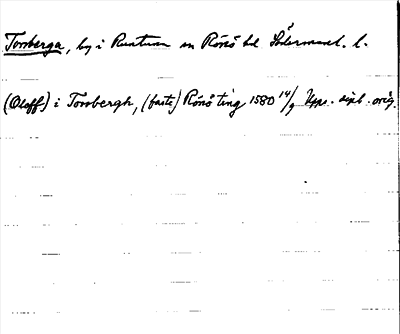 Torsberga, by i Runtuna sn Rönö hd Södermanl. l.
(Oloff) i Torsbergh, (faste) Rönö ting 1580 14/9 Upps. dipl. orig.